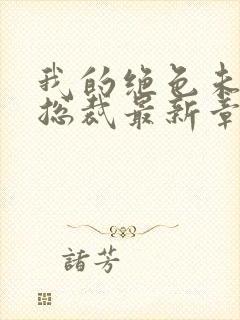 我的绝色未
总裁最新章
諸芳